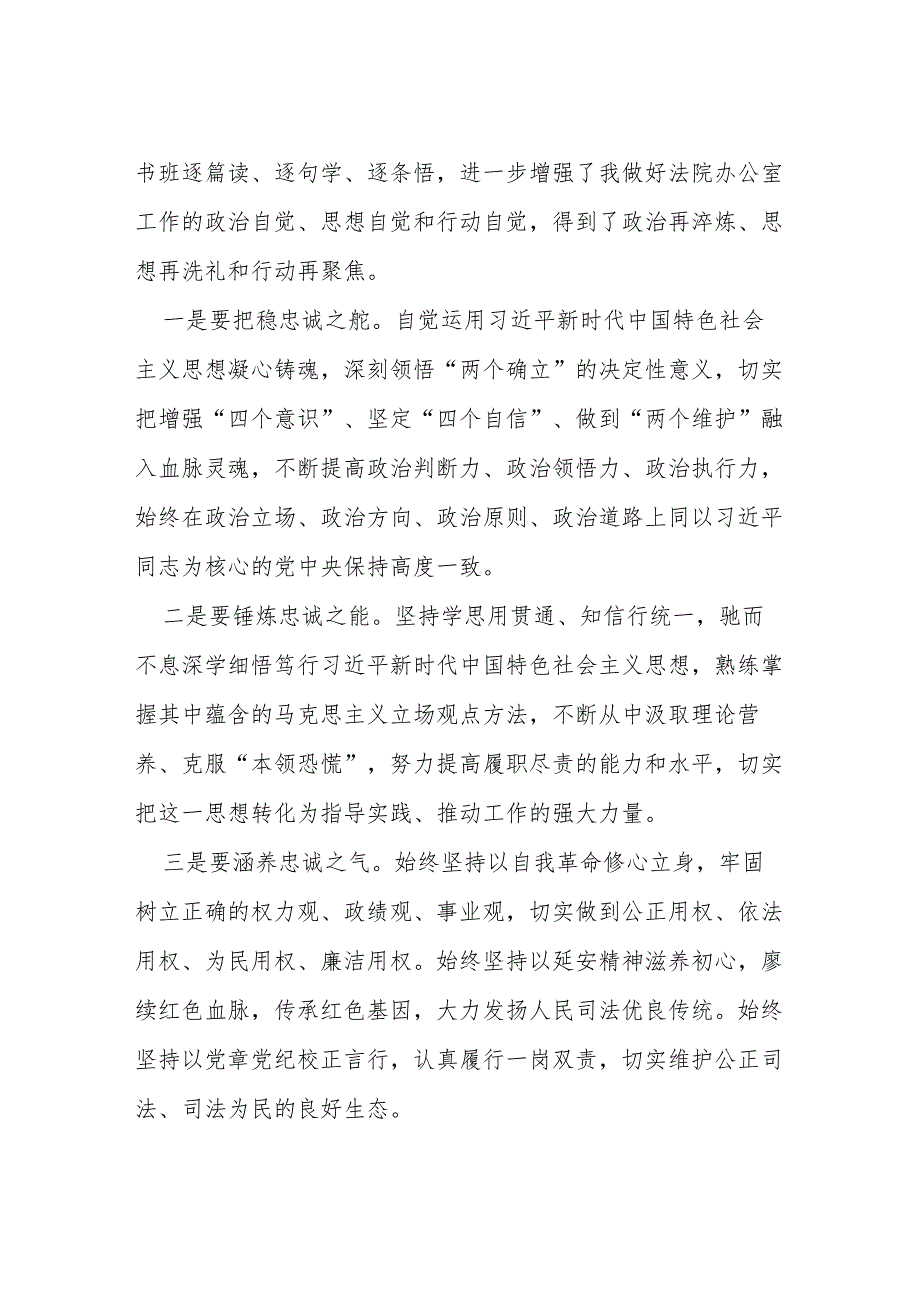 书班逐篇读、逐句学、逐条悟，进一步增强了我做好法院办公室
工作的政治自觉、思想自觉和行动自觉，得到了政治再淬炼、思
想再洗礼和行动再聚焦。
一是要把稳忠诚之舵。自觉运用习近平新时代中国特色社会
主义思想凝心铸魂，深刻领悟“两个确立”的决定性意义，切实
把增强“四个意识”、坚定“四个自信”、做到“两个维护”融
入血脉灵魂，不断提高政治判断力、政治领悟力、政治执行力，
始终在政治立场、政治方向、政治原则、政治道路上同以习近平
同志为核心的党中央保持高度一致。
二是要锤炼忠诚之能。坚持学思用贯通、知信行统一，驰而
不息深学细悟笃行习近平新时代中国特色社会主义思想，熟练掌
握其中蕴含的马克思主义立场观点方法，不断从中汲取理论营
养、克服“本领恐慌”，努力提高履职尽责的能力和水平，切实
把这一思想转化为指导实践、推动工作的强大力量。
三是要涵养忠诚之气。始终坚持以自我革命修心立身，牢固
树立正确的权力观、政绩观、事业观，切实做到公正用权、依法
用权、为民用权、廉洁用权。始终坚持以延安精神滋养初心，廖
续红色血脉，传承红色基因，大力发扬人民司法优良传统。始终
坚持以党章党纪校正言行，认真履行一岗双责，切实维护公正司
法、司法为民的良好生态。